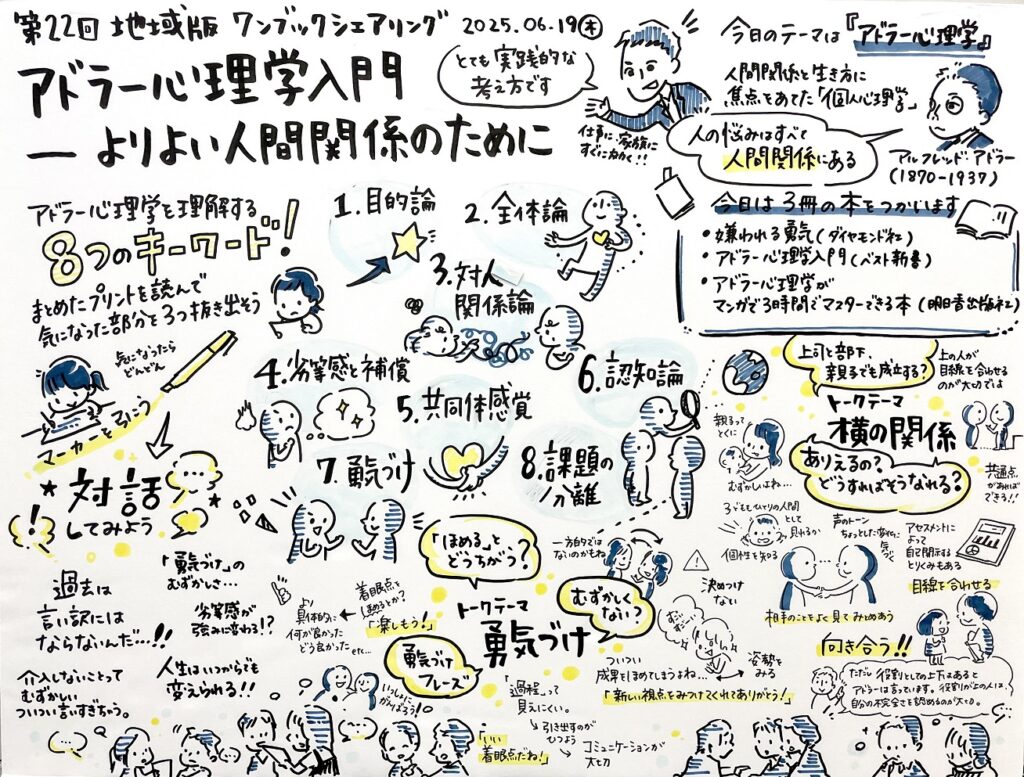 第22回 地域版 ワンブックシェアリング 2025.06.19㊍
アドラー心理学入門
― よりよい人間関係のために
とても実践的な
考え方です
仕事に家族に
すぐに力かく!!
今日のテーマは『アドラー心理学』
人間関係と生き方に
焦点をあてた「個人心理学」
人の悩みはすべて
人間関係にある
アルフレッド・アドラー
(1870-1937)
今日は3冊の本をつかいます
・嫌われる勇気(ダイヤモンド社)
・アドラー心理学入門(ベスト新書)
・アドラー心理学が
マンガで3時間でマスターできる本(明日香出版社)
アドラー心理学を理解する
8つのキーワード!
まとめたプリントを読んで
気になった部分を3つ抜き出そう
気になったら
どんどん
マーカーをひこう
1.目的論
2.全体論
3.対人
関係論
4.劣等感と補償
5.共同体感覚
6.認知論
7.勇気づけ
8.課題の
分離
対話
してみよう
上司と部下、
親子でも成立する?
上の人が
目線を合わせる
のが大切では
トークテーマ
横の関係
ありえるの?
どうすればそうなれる?
共通点
があれば
できる!!
親子って
とくに
むずかしいよね…
子どももひとりの人間
として
見れるか
個性を知る
声のトーン
ちょっとした変化に
気づく
アセスメントに
よって
自己開示する
とりくみもある
目線を合わせる
相手のことをよく見てみとめあう
向き合う!!
ただし役割としての上下はあると
アドラーは言っています。役割が上の人は、
自分の不完全さを認めるのが大切。
過去は
言い訳には
ならないんだ…!!
「勇気づけ」の
むずかしさ…
劣等感が
強みに変わる!?
介入しないことって
むずかしい
ついつい言いすぎちゃう。
人生はいつからでも
変えられる!!
いっしょに
がんばろう!
「ほめる」と
どうちがう?
着眼点を
ほめるとか?
「楽しもう!」
より
具体的に
何が良かった
どう良かった etc…
トークテーマ
勇気づけ
勇気づけ
フレーズ
むずかしく
ない?
一方的では
ないのかもね
決めつけ
ない
ついつい
成果をほめてしまうよね…
姿勢を
みる
「新しい視点をみつけてくれてありがとう!」
「過程」って
見えにくい。
引き出すのが
ひつよう
コミュニケーションが
大切
「いい
着眼点だね!」